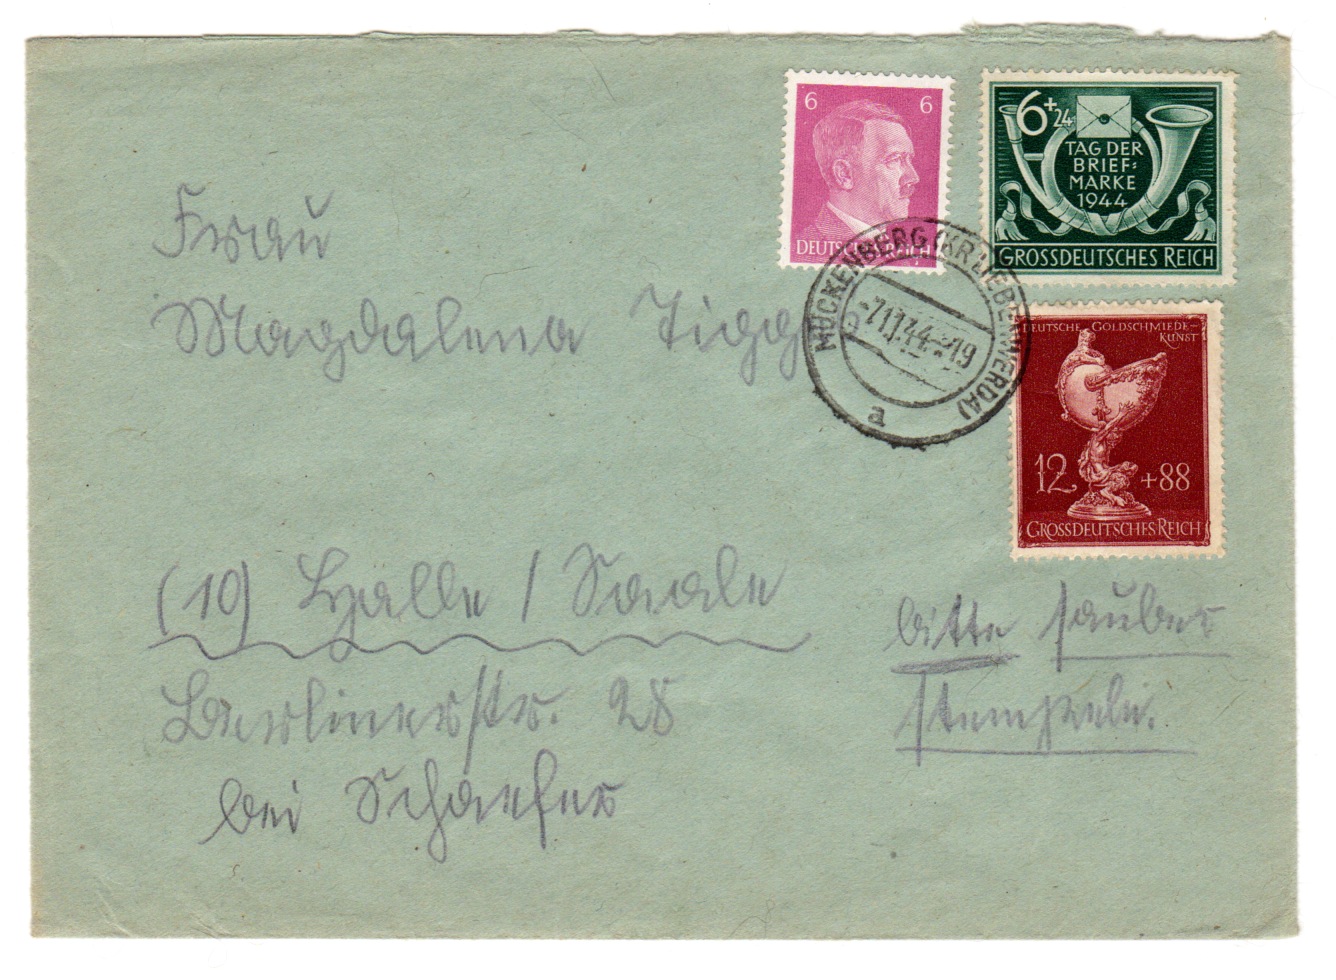 6 6
DEUTSCHES REICH
6+24
TAG DER
BRIEF=
MARKE
1944
GROSSDEUTSCHES REICH
DEUTSCHE GOLDSCHMIEDE-
KUNST
12 +88
GROSSDEUTSCHES REICH
MÜCKENBERG (KR LIEBENWERDA)
-7.11.44-19
a
Frau
Magdalena
(10) Halle / Saale
Berlinerstr. 28
bei Schaefer
bitte sauber
stempeln.